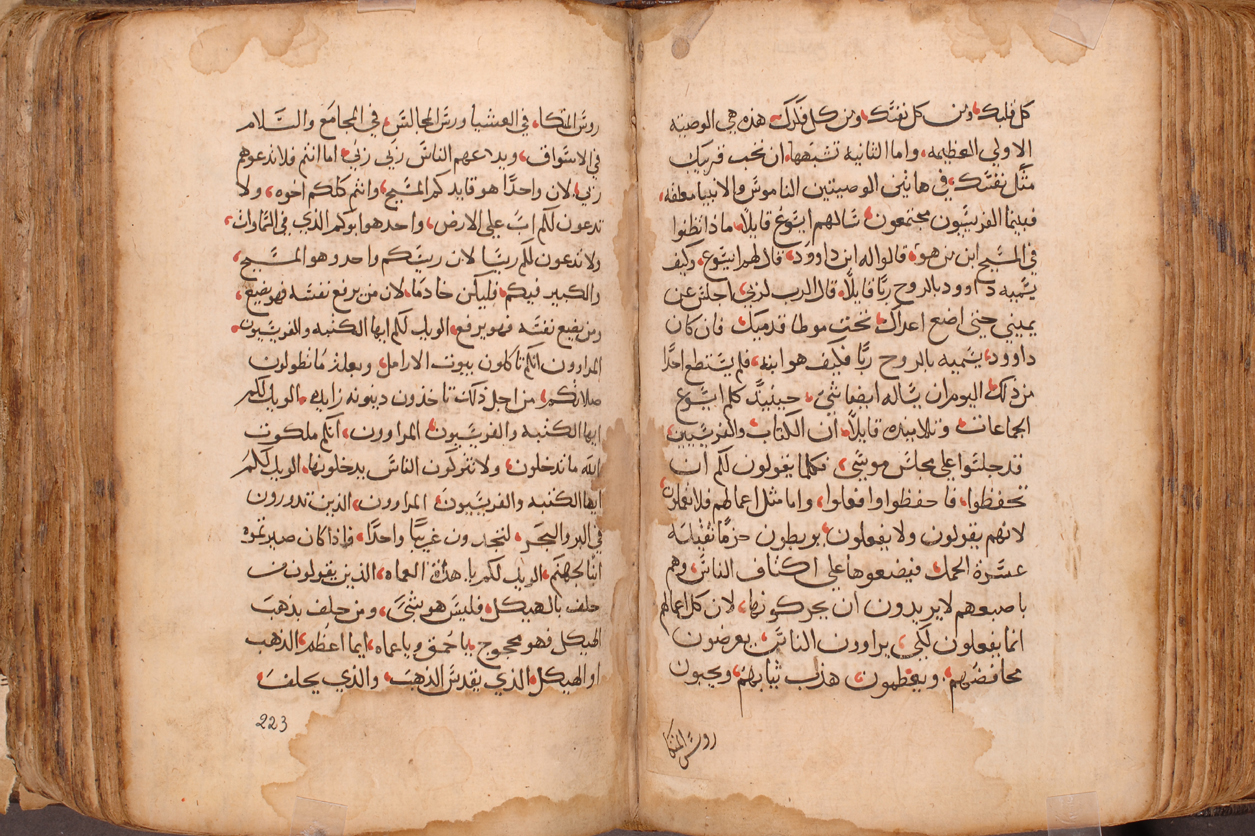 كل قلبك، ومن كل نفسك، ومن كل فكرك، هذه هي الوصيه
الاولي العظيمه، واما الثانيه تشبهها، ان تحب قريبك
مثل نفسك، في هاتين الوصيتين الناموس والانبيا معلقه،
فبينما الفريسيون مجتمعون، سالهم ايسوع قايلا، ماذا تظنوا
في المسيح ابن من هو، قالوا له ابن داوود، قال لهم ايسوع، وكيف
يسميه داوود بالروح ربا قايلا، قال الرب لربي، اجلس عن
يميني حتى اضع اعداك، تحت موطا قدميك، فان كان
داوود، يسميه بالروح ربا فكيف هو ابنه، فلم يستطع احدا
من ذلك، اليوم ان يساله ايضا شي، حينيذ كلم ايسوع
الجماعات، وتلاميذه قايلا، ان الكتاب، والفريسيين،
قد جلسوا علي مجلس موسي، فكلما يقولون لكم ان
تحفظوا، فاحفظوا وافعلوا، واما مثل اعمالهم فلا تفعلون
لانهم يقولون ولا يفعلون، يربطون حزما ثقيله
عسرة الحمل، فيضعوها علي اكتاف الناس، وهم
باصبعهم لا يريدون ان يحركونها، لان كل اعمالهم
انما يفعلون لكي، يراوون الناس، يعرضون
محافضهم، ويعظمون، هذاب ثيابهم، ويحبون
روس المتكا
روس المتكا، في العشيا وروس المجالس، في المجامع والسلام
في الاسواق، ويدعهم الناس ربي ربي، اما انتم فلا تدعوهم
ربي، لان واحدا هو قايدكم المسيح، وانتم كلكم اخوه، ولا
تدعون لكم اب، علي الارض، واحد هو ابوكم الذي في السماوات،
ولا تدعون لكم ريسا لان ريسكم واحد وهو المسيح،
والكبير فيكم، فليكن خادما، لان من يرفع نفسه فهو يضيع،
ومن يضيع نفسه فهو يرفع، الويل لكم ايها الكتبه والفريسيون،
المراوون انكم تاكلون بيوت الارامل، وبعلة ما تطولون
صلاتكم، من اجل ذلك تاخذون دينونه زايده، الويل لكم
ايها الكتبه والفريسيون، المراوون، انكم ملكوت
الله ما تدخلون، ولا تتركون الناس يدخلونها، الويل لكم
ايها الكتبه والفريسيون، المراوون، الذين تدورون
في البر والبحر، لتجدون غريبا واحدا، فاذا كان صيرتموه
ابنا لجهنم، الويل لكم يا هداة، العماه، الذين يقولون من
حلف بالهيكل، فليس هو شي، ومن حلف بذهب
الهيكل فهو محجوج، يا حمق ويا عماه، ايما اعظم، الذهب
او الهيكل، الذي يقدس الذهب، والذي يحلف
223